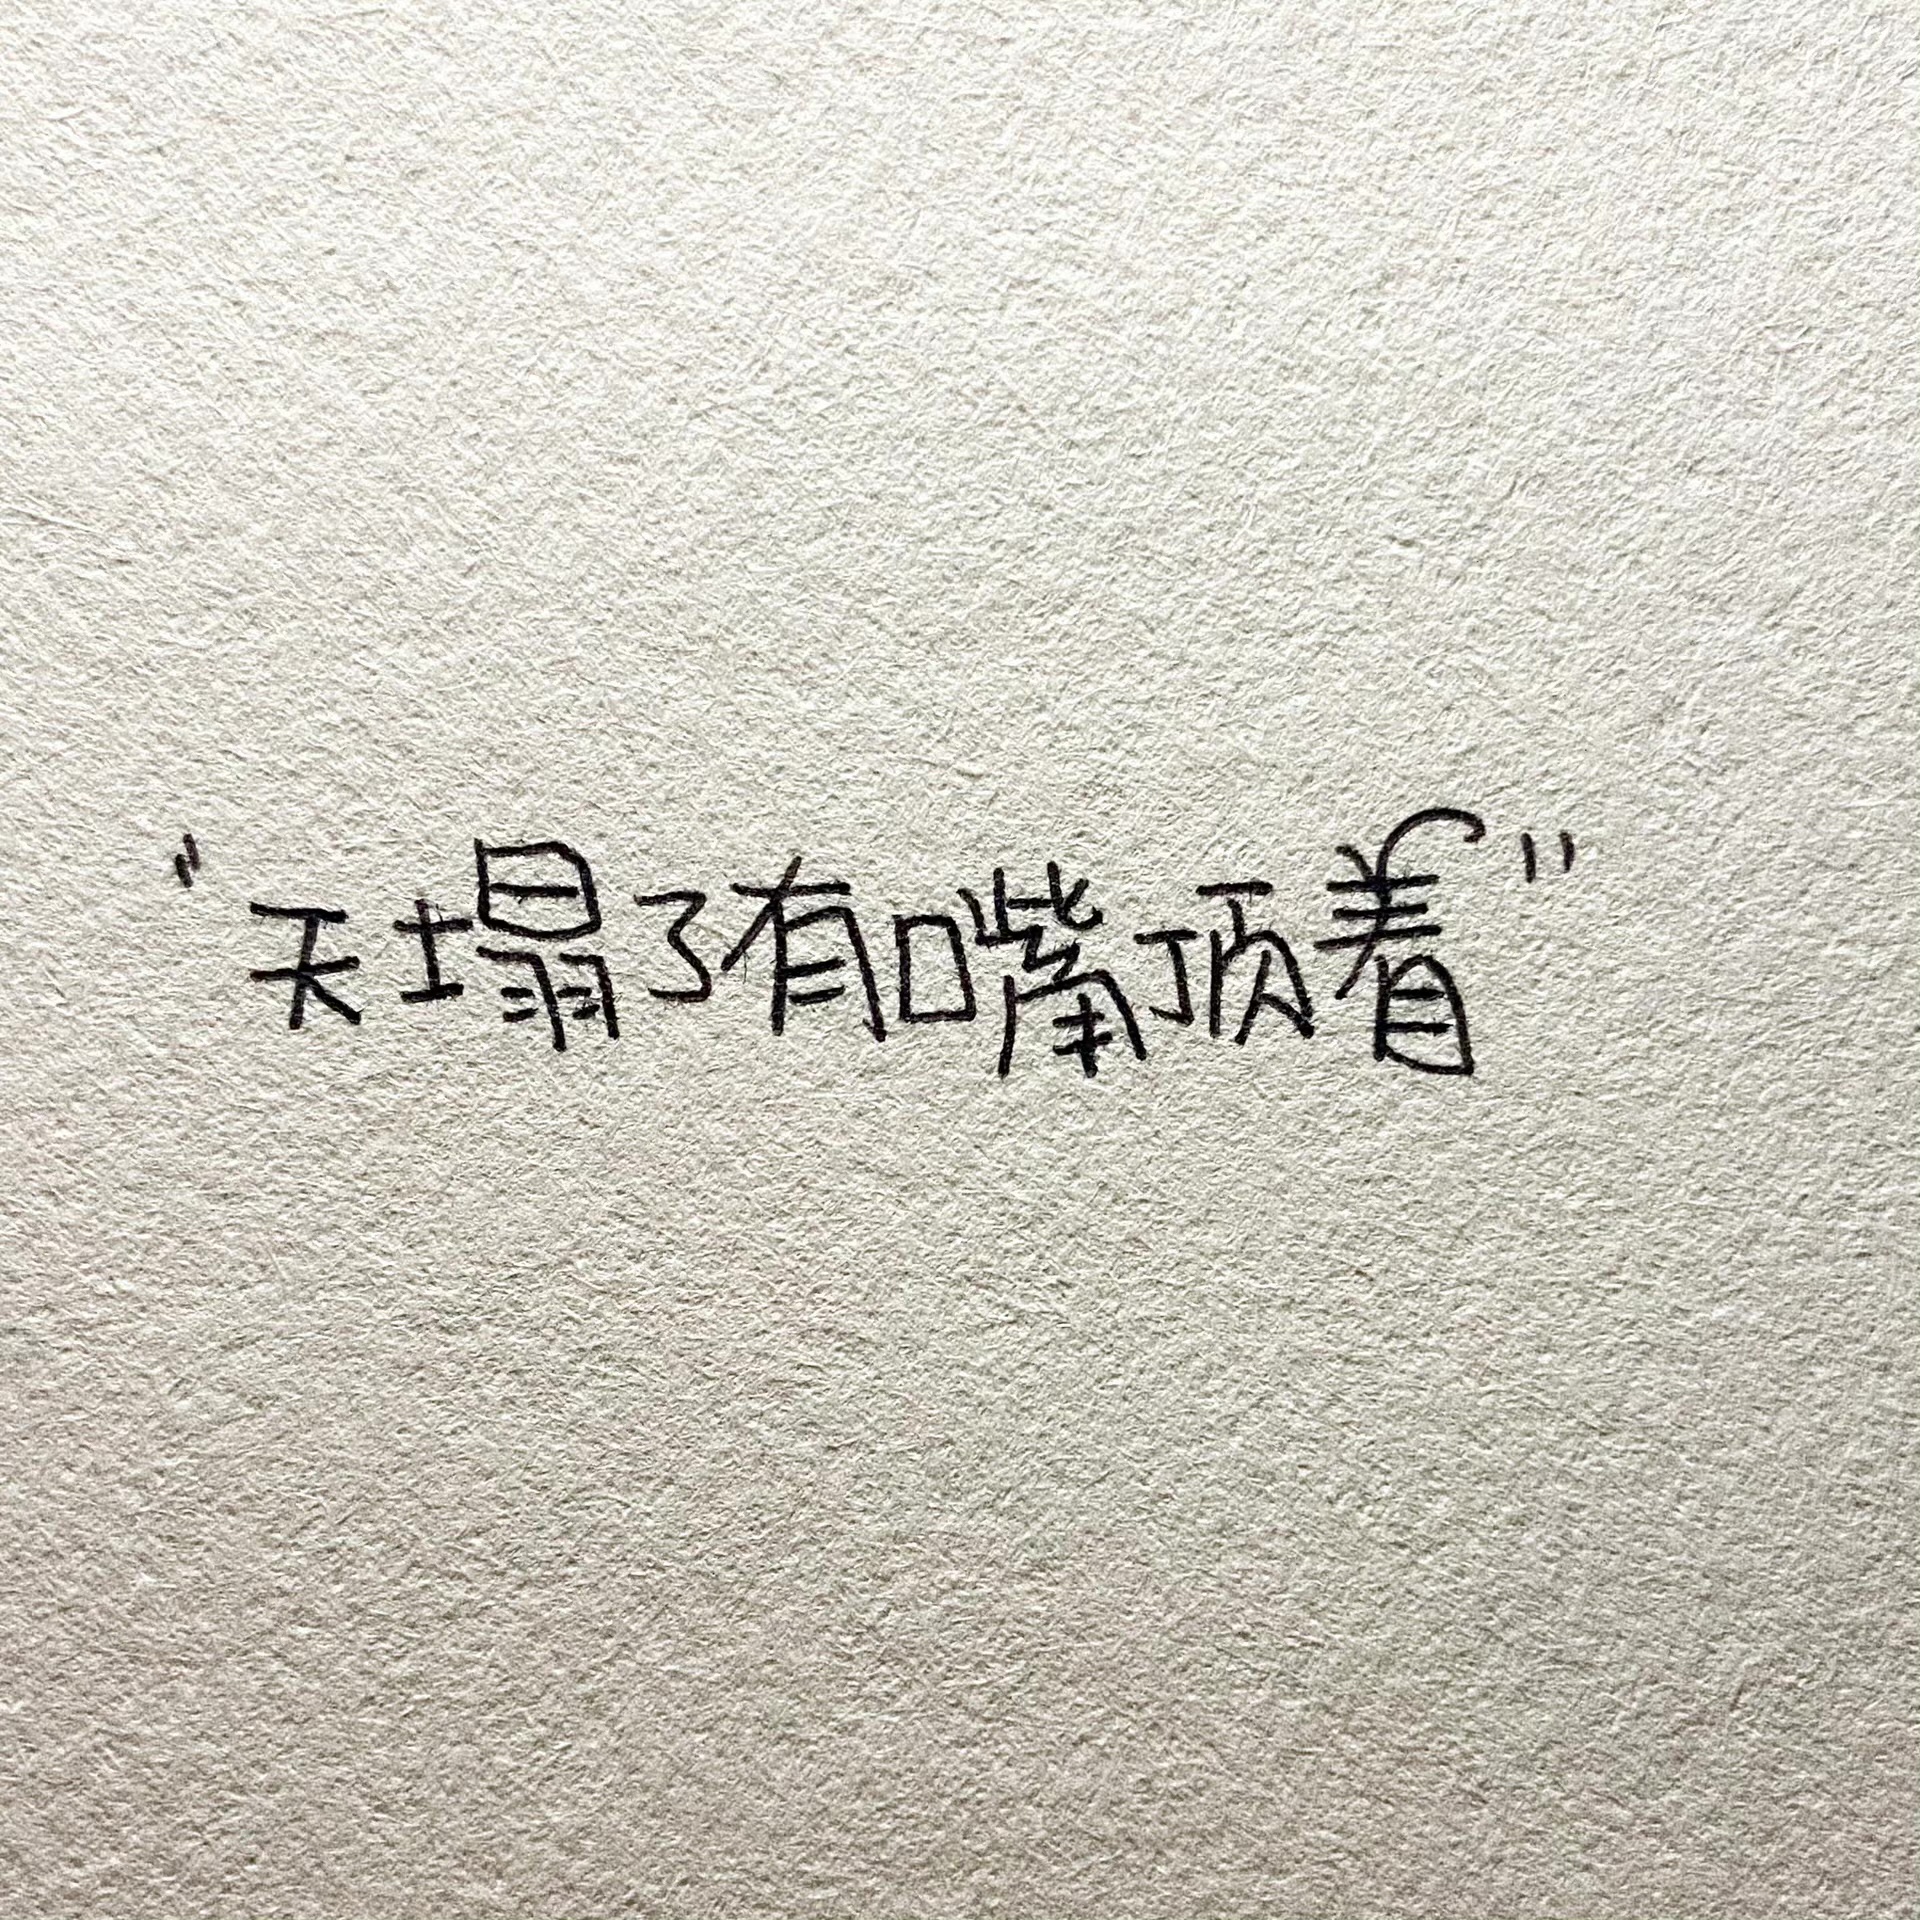 "天塌了有嘴顶着"